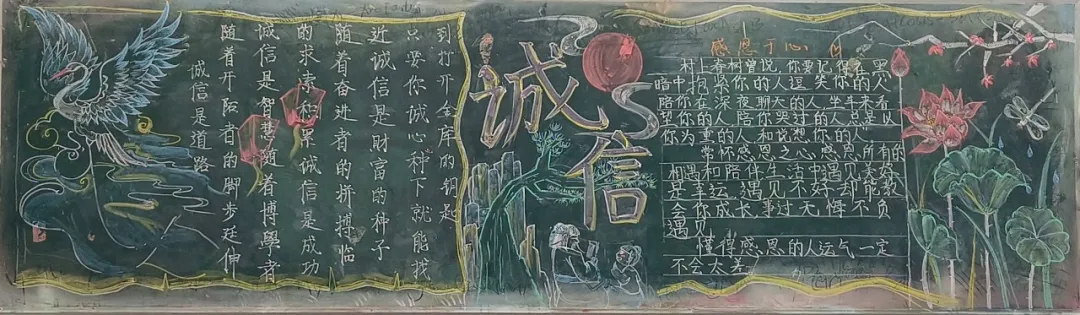 诚信是道路
随着开阪者的脚步延伸
诚信是智慧随着博學者
的求索和累诚信是成功
随着奋进者的拼搏临
近诚信是财富的种子
只要你诚心种下就能找
到打开金库的钥匙
诚信
感恩于心
村上春树曾说，你要记得在黑
暗中抱紧你的人逗笑你的人
陪你在深夜聊天的人坐车来看
望你的人陪你哭过的人总是以
你为重的人和说想你的人
常怀感恩之心感恩所有的
相遇和陪伴生活中遇见美好
是幸运遇见不好却能教
会你成长事过无悔不负
遇见
懂得感恩的人运气一定
不会太差